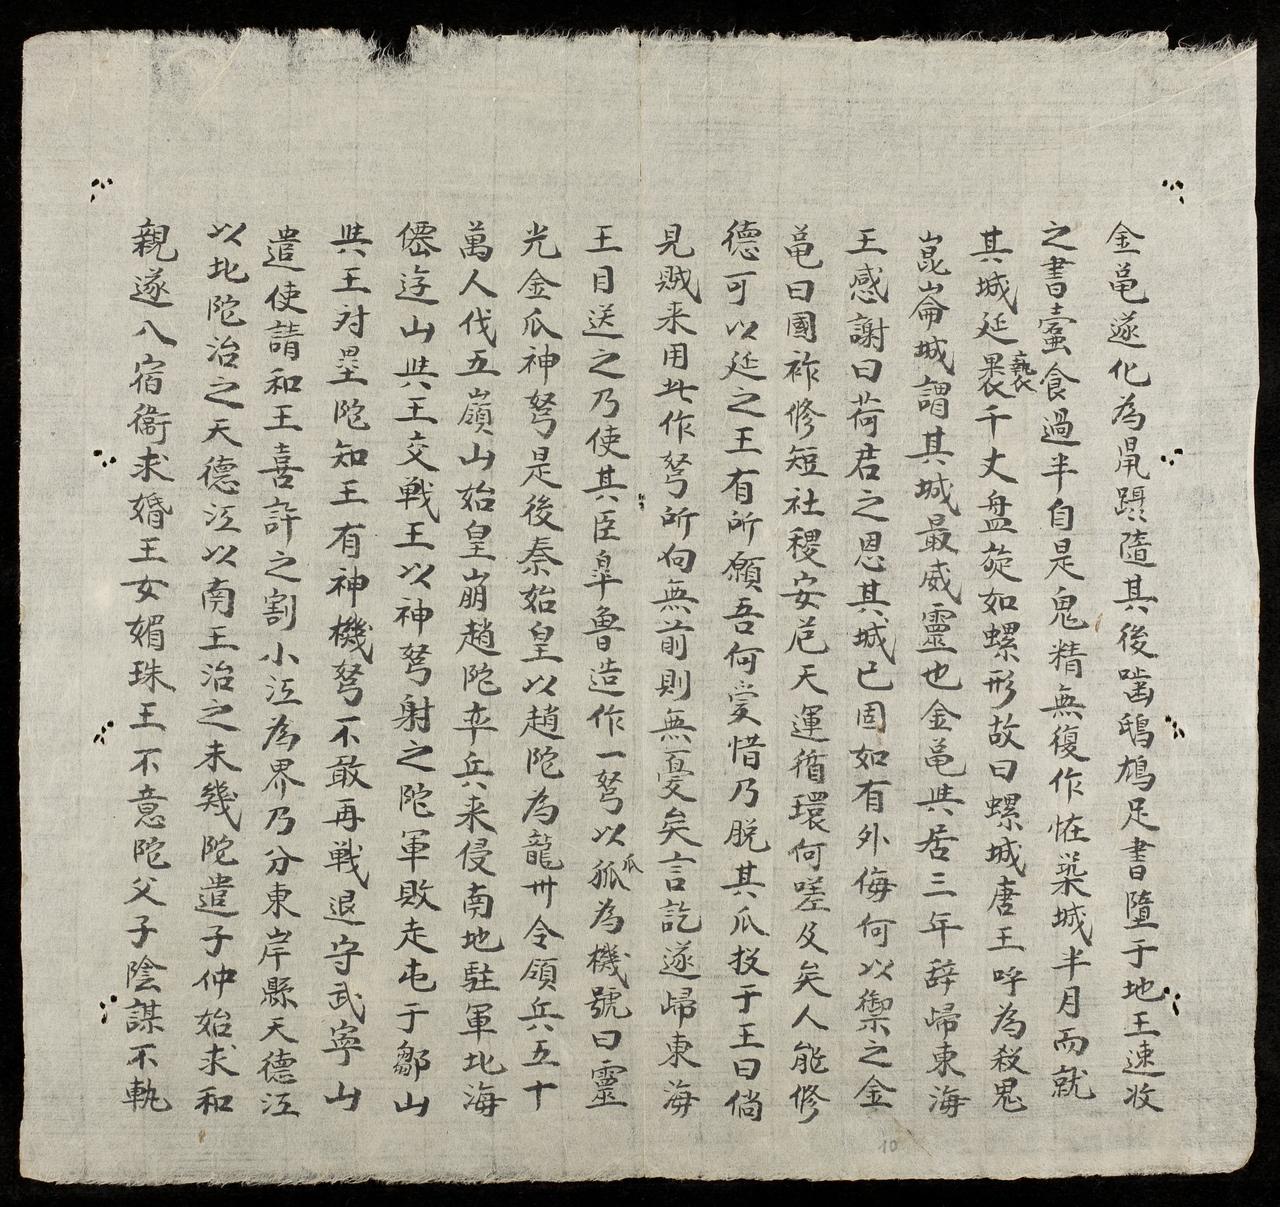 金黾遂化為鼡蹑隨其後嚙鴟鳩足書墮于地王速收
之書蠧食過半自是鬼精無復作怪築城半月而就
其城延裹褻千丈盘旋如螺形故曰螺城唐王呼為殺鬼
崑崙城謂其城最威靈也金黾共居三年辞㱕東海
王感謝曰荷君之恩其城已固如有外侮何以禦之金
黾曰國祚修短社稷安危天運循環何嗟及矣人能修
德可以延之王有所願吾何爱惜乃脱其爪投于王曰倘
見贼来用此作弩所向無前則無憂矣言訖遂㱕東海
王目送之乃使其臣皐魯造作一弩以孤爪為機號曰靈
光金爪神弩是後秦始皇以趙陀為龍卅令領兵五十
萬人伐五嶺山始皇崩趙陀卒兵来侵南地駐軍北海
僊逰山共王交戰王以神弩射之陀軍敗走屯于鄒山
共王対壘陀知王有神機弩不敢再戰退守武寧山
遣使請和王喜許之割小江為界乃分東岸縣天德江
以北陀治之天德江以南王治之未幾陀遣子仲始求和
親遂入宿衞求婚王女媚珠王不意陀父子陰謀不軌
10